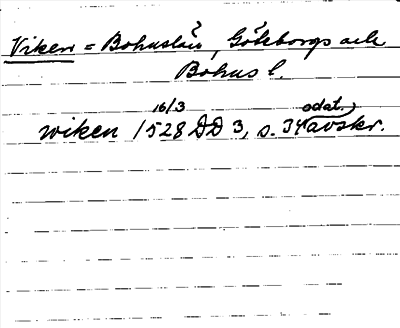 Viken = Bohuslän, Göteborgs och
Bohus l.
wiken 16/3 1528 DD 3, s. 34 (odat. avskr.